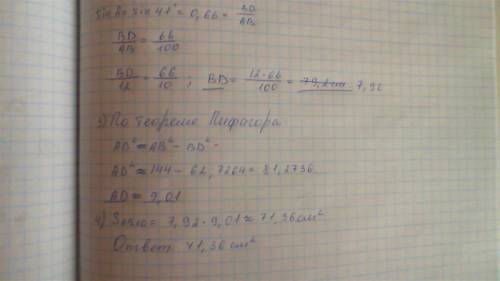 sin A = sin 41° = 0,66 = BD/AB
BD/AB = 66/100
BD/12 = 66/10 ; BD = 12·66/100 = 79,2 см 7,92
3) По теореме Пифагора
AD² = AB² - BD² -
AD² = 144 - 62,7264 = 81,2736
AD = 9,01
4) = 7,92·9,01 ≈ 71,36 см²
Ответ 71,36 см²